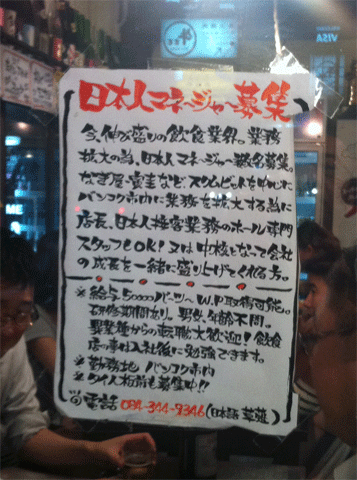 日本人マネージャー募集
今、伸び盛りの飲食業界。業務
拡大の為、日本人マネージャー数名募集。
なぎ屋・黄金など、スクムビットを中心に
バンコク市内に業務を拡大する為に
店長、日本人接客業務のホール専門
スタッフもOK！又は中核となって会社
の成長を一緒に盛り上げてくれる方。
※給与、50000バーツ〜 W.P取得可能。
研修期間有り。男女、年齢不問。
異業種からの転職大歓迎！飲食
店の事は入社後に勉強できます。
※勤務地 バンコク市内
※タイ人板前も募集中!!
電話 084-344-9346(日本語 草薙)
VISA